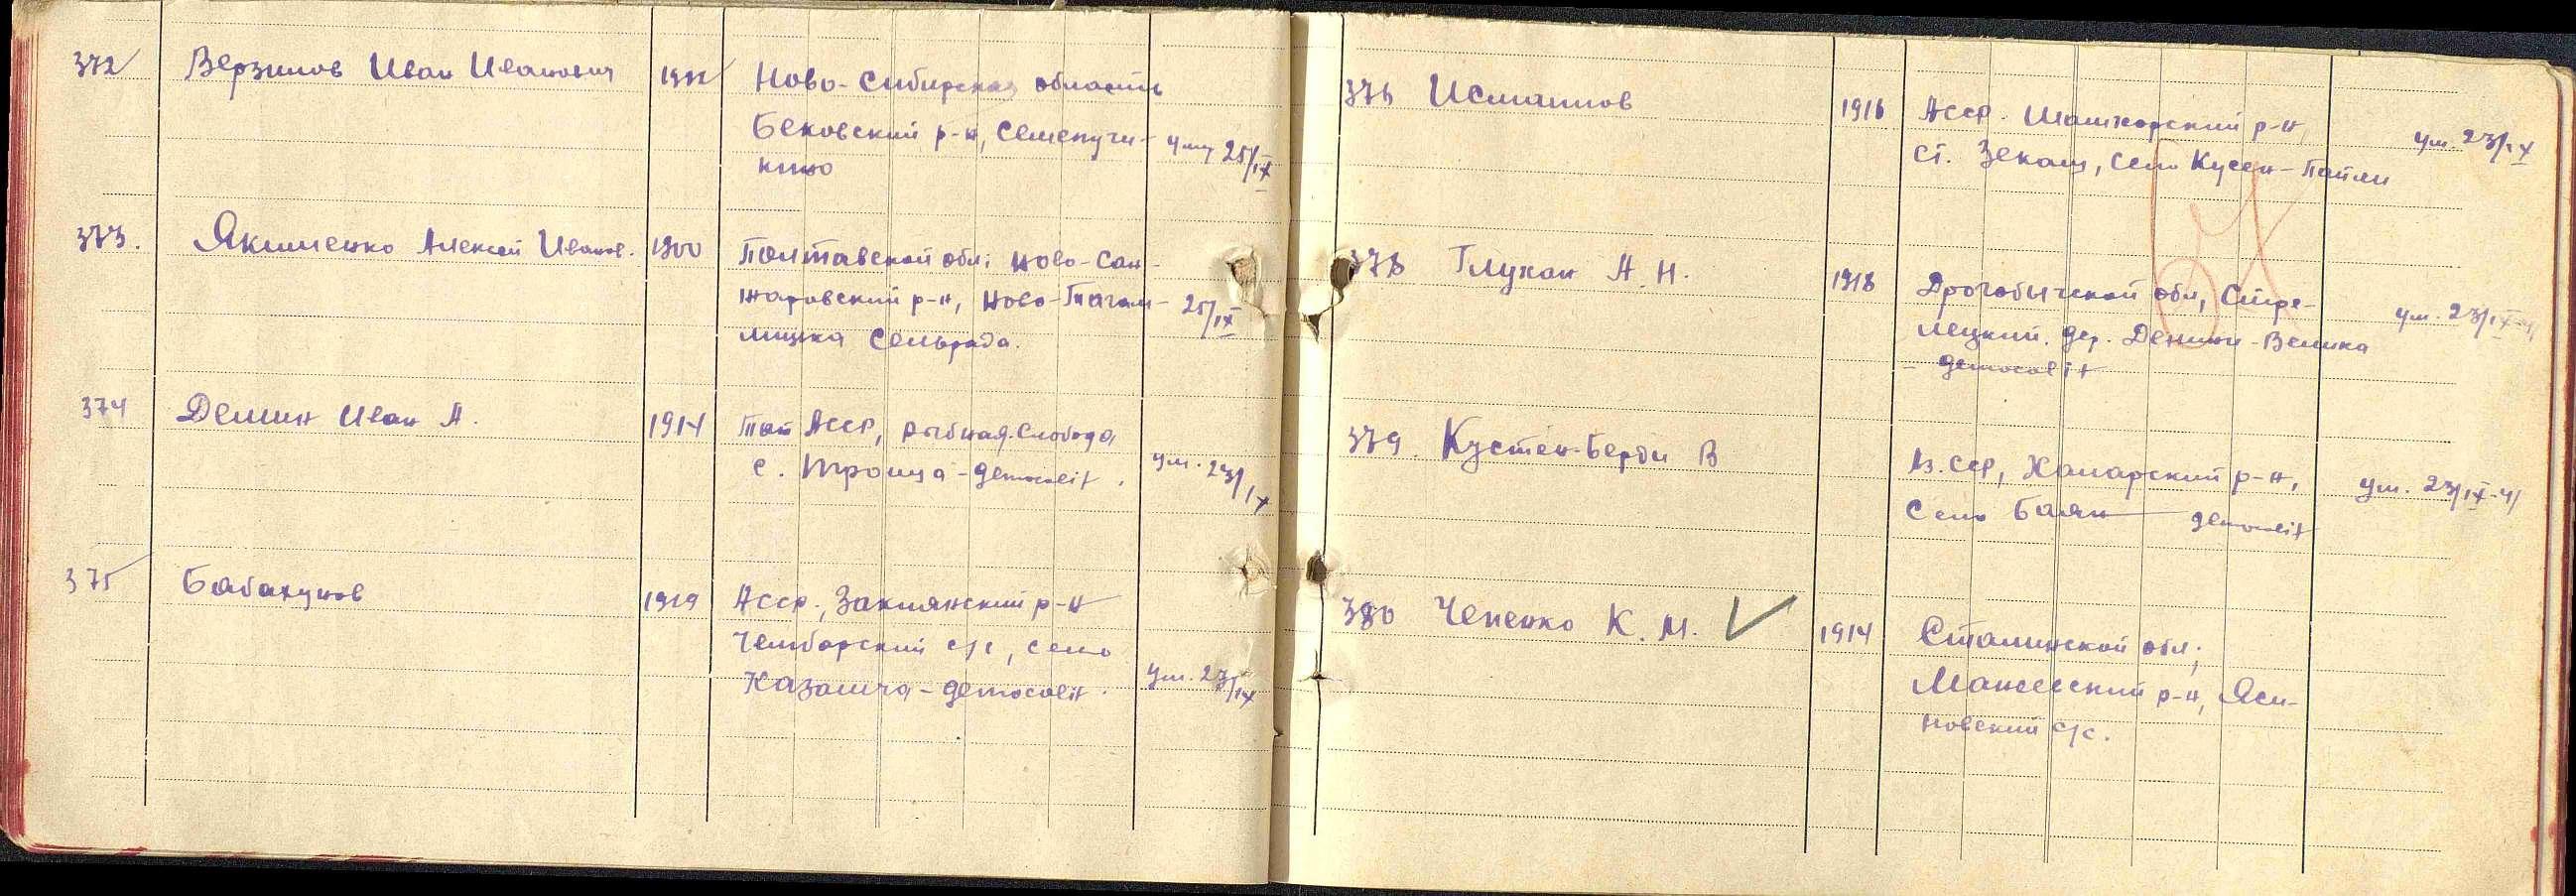 372 Верзилов Иван Иванович 1911 Ново-Сибирская область
Бековский р-н, Семепучи- ум 25/IX
кино
373. Якименко Алексей Иванов. 1900 Полтавской обл; Ново-Сан-
жаровский р-н, Ново- 25/IX
Сельрада.
374 Демин Иван А. 1914 Тат АССР, рыбная.Слобода
с. Троица - демосolit. ум. 23/IX
375 Бабакунов 1919 Асср; Закиянский р-н
Чемборский с/с, село
Казамча - democolit. ум. 23/IX
376 Исмаилов 1916 Асср. Шамхорский р-н,
ст. Зекам, село Кусен-Пайли ум. 23/IX
378 Глухан А. Н. 1918 Дрогобычской обл, Стре-
лецкий. дер. Велика ум. 23/IX-41
democolit
379. Кустен-Берди В Аз.ССР, Ханарский р-н,
село Баян democolit ум. 23/IX-41
380 Чепенко К. М. V 1914 Сталинской обл;
р-н, Яси-
новский с/с.